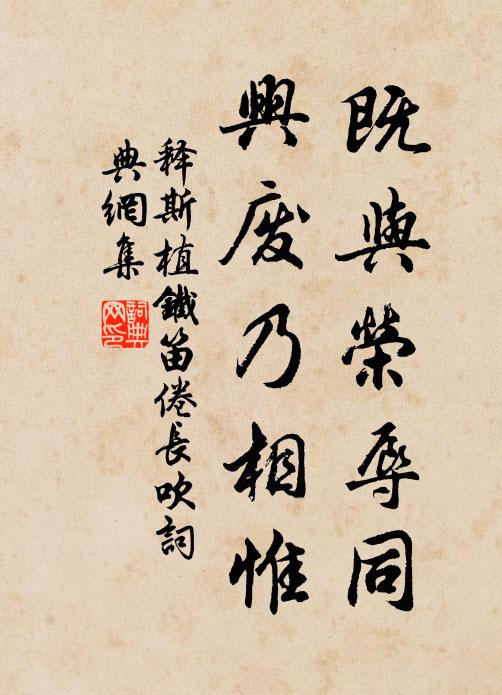 既與榮辱同
興废乃相惟
释斯植鐵笛倦長吹詞
典網集
詞典
网印